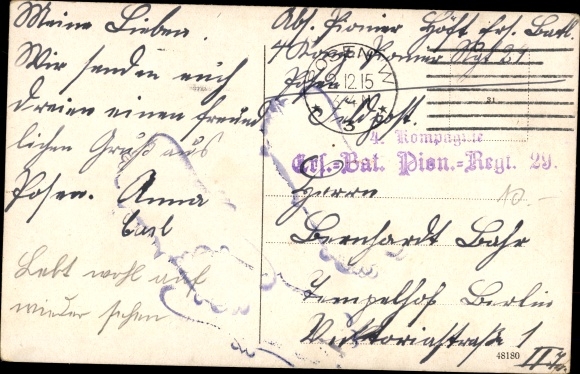 Meine Lieben.
Wir senden euch
dreien einen freund
lichen Gruß aus
Posen. Anna
Carl
Lebt wohl auf
wieder sehen
Abs. Pionier Höft Ers. Batl.
4 Komp. Pionier Rgt 29
Posen
Feldpost.
POSEN
12.15
C 3
4. Kompagnie
Ers.=Bat. Pion.=Regt. 29.
Herrn
10.-
Bernhardt Bahr
Tempelhof Berlin
Viktoriastraße 1
II Tr.
48180